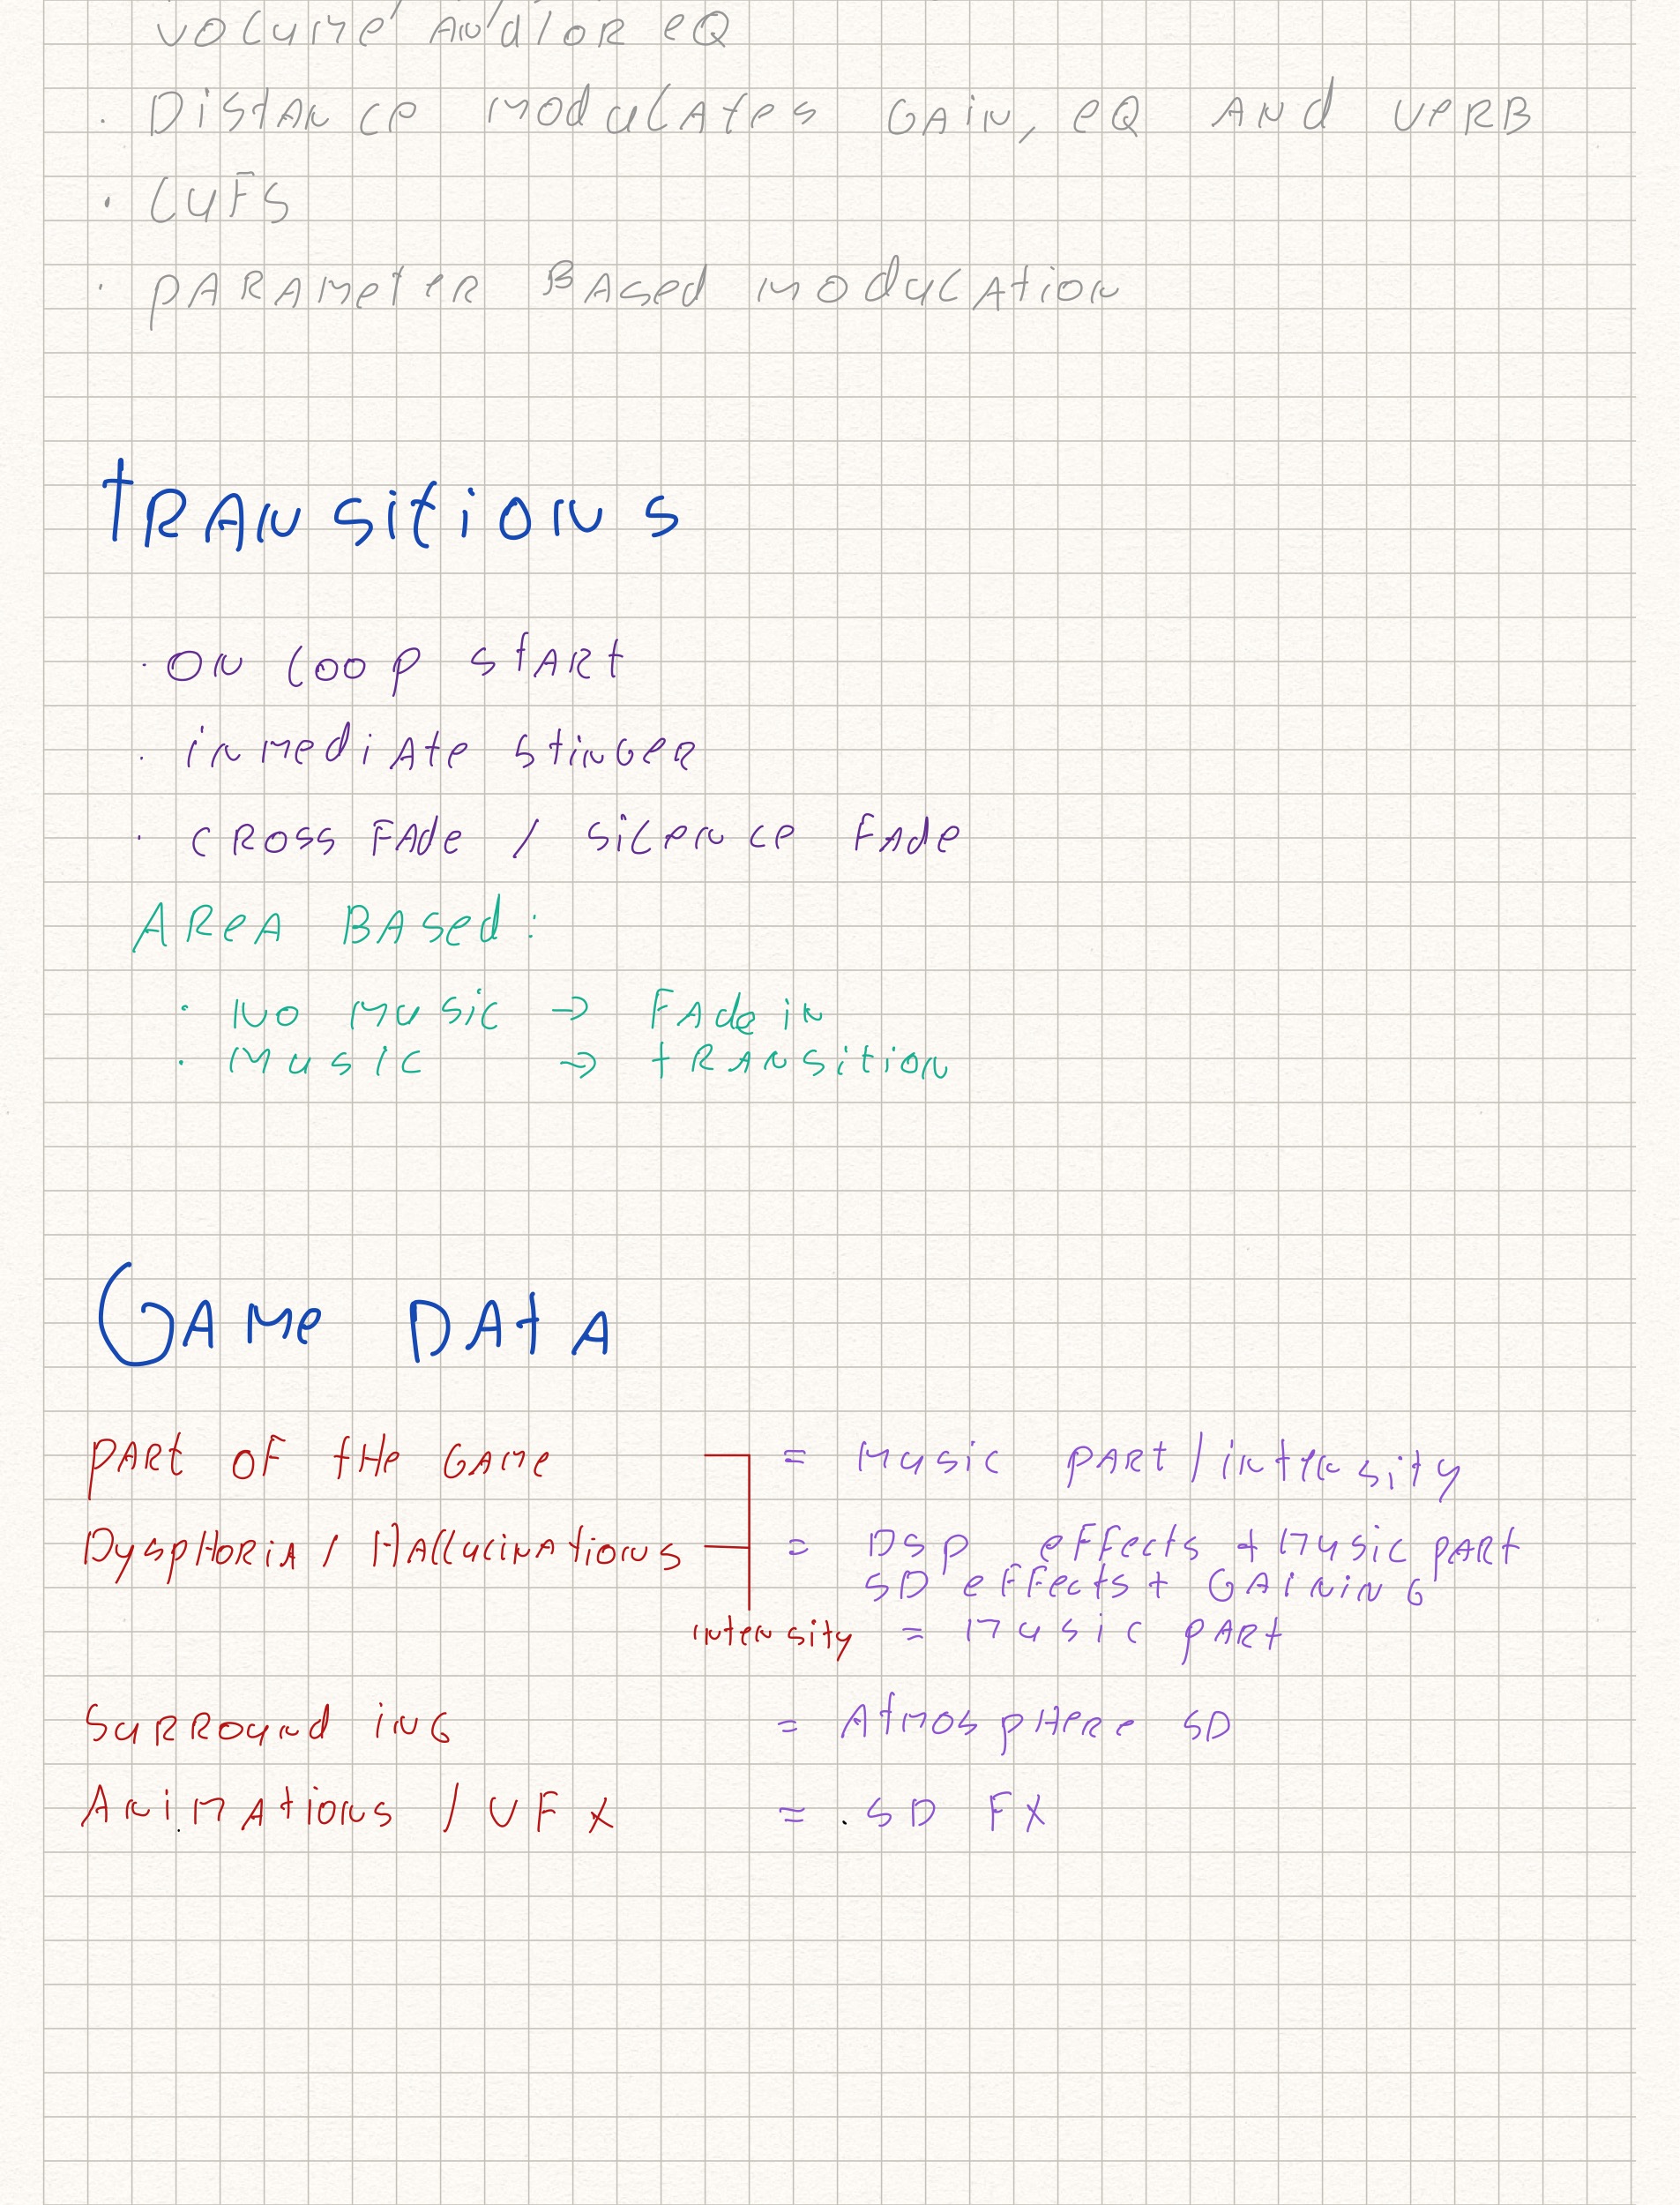 volume and/or eQ
· Distance modulates Gain, eQ and verb
· LUFS
· parameter Based modulation
transitions
· on loop start
· inmediate stinger
· cross Fade / silence Fade
Area Based:
· No music → Fade in
· music → transition
Game Data
part of the Game = music part / intensity
Dysphoria / Hallucinations = DSP effects + music part
SD effects + Gaining
intensity = music part
Surrounding = Atmosphere SD
Animations / VFX = . SD FX